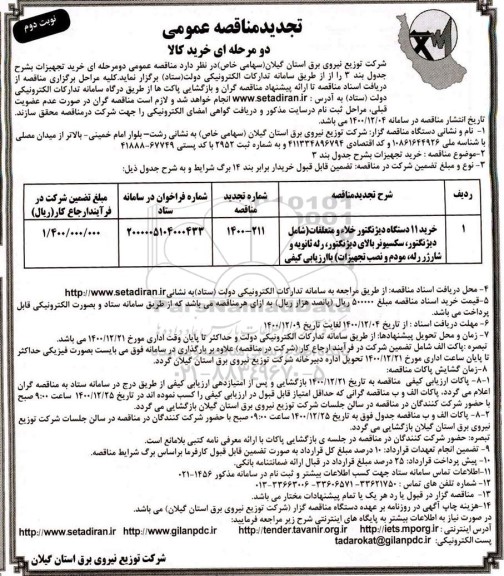 نوبت دوم
تجدیدمناقصه عمومی
دو مرحله ای خرید کالا
شرکت توزیع نیروی برق استان گیلان(سهامی خاص)در نظر دارد مناقصه عمومی دومرحله ای خرید تجهیزات بشرح
جدول بند ۳ را از طریق سامانه تدارکات الکترونیکی دولت(ستاد) برگزار نماید.کلیه مراحل برگزاری مناقصه از
دریافت اسناد مناقصه تا ارائه پیشنهاد مناقصه گران و بازگشایی پاکت ها از طریق درگاه سامانه تدارکات الکترونیکی
دولت (ستاد) به آدرس : www.setadiran.ir انجام خواهد شد و لازم است مناقصه گران در صورت عدم عضویت
قبلی، مراحل ثبت نام درسایت مذکور و دریافت گواهی امضای الکترونیکی را جهت شرکت درمناقصه محقق سازند.
تاریخ انتشار مناقصه در سامانه ۱۴۰۰/۱۲/۰۴ می باشد.
۱- نام و نشانی دستگاه مناقصه گزار: شرکت توزیع نیروی برق استان گیلان (سهامی خاص) به نشانی رشت– بلوار امام خمینی- بالاتر از میدان مصلی
با شناسه ملی ۱۰۸۶۱۶۴۴۹۲۶ و کد اقتصادی ۴۱۱۳۳۴۸۹۶۷۹۴ و به شماره ثبت ۲۹۵۲ با کد پستی ۶۷۷۴۹-۴۱۸۸۸
۲-موضوع مناقصه : خرید تجهیزات بشرح جدول بند ۳
۳- نوع و مبلغ تضمین شرکت در مناقصه: تضمین قابل قبول خریدار برابر بند ۱۴ برگ شرایط و به شرح جدول ذیل:
ردیف | شرح تجدیدمناقصه | شماره تجدید مناقصه | شماره فراخوان در سامانه ستاد | مبلغ تضمین شرکت در فرآیندارجاع کار(ریال)
۱ | خرید ۱۱ دستگاه دیژنکتور خلاء و متعلقات(شامل دیژنکتور، سکسیونر بالای دیژنکتور، رله ثانویه و شارژر رله، مودم و نصب تجهیزات) باارزیابی کیفی | ۲۱۱-۱۴۰۰ | ۲۰۰۰۰۰۵۱۰۴۰۰۰۴۳۳ | ۱/۴۰۰/۰۰۰/۰۰۰
۴- محل دریافت اسناد مناقصه: از طریق مراجعه به سامانه تدارکات الکترونیکی دولت (ستاد)به نشانی http://www.setadiran.ir
۵- قیمت خرید اسناد مناقصه مبلغ ۵۰۰۰۰۰ ریال (پانصد هزار ریال) به ازای هرمناقصه می باشد که از طریق سامانه ستاد و بصورت الکترونیکی قابل
پرداخت می باشد.
۶- مهلت دریافت اسناد : از تاریخ ۱۴۰۰/۱۲/۰۴ لغایت تاریخ ۱۴۰۰/۱۲/۰۹
۷- زمان و محل تحویل پیشنهادها: از طریق سامانه تدارکات الکترونیکی دولت و حداکثر تا پایان وقت اداری مورخ ۱۴۰۰/۱۲/۲۱ می باشد.
تبصره: پاکت الف شامل تضمین شرکت در فرآیند ارجاع کار (شرکت در مناقصه) علاوه بر بارگذاری در سامانه فوق می بایست بصورت فیزیکی حداکثر
تا پایان ساعت اداری مورخ ۱۴۰۰/۱۲/۲۱ تحویل اداره دبیرخانه شرکت توزیع نیروی برق استان گیلان گردد.
۸-زمان گشایش پاکات مناقصه:
۸-۱- پاکات ارزیابی کیفی مناقصه به تاریخ ۱۴۰۰/۱۲/۲۱ بازگشایی و پس از امتیازدهی ارزیابی کیفی از طریق درج در سامانه ستاد به مناقصه گران
اعلام می گردد. پاکات الف و ب مناقصه گرانی که حداقل امتیاز قابل قبول در ارزیابی کیفی را کسب نموده اند در تاریخ ۱۴۰۰/۱۲/۲۵ ساعت ۹:۰۰ صبح
با حضور شرکت کنندگان در مناقصه در سالن جلسات شرکت توزیع نیروی برق استان گیلان بازگشایی می گردد.
۸-۲- پاکات الف و ب مناقصه جدول فوق به تاریخ ۱۴۰۰/۱۲/۲۵ ساعت ۰۹:۰۰ صبح با حضور شرکت کنندگان در مناقصه در سالن جلسات شرکت توزیع
نیروی برق استان گیلان بازگشایی می گردد.
تبصره: حضور شرکت کنندگان در مناقصه در جلسه ی بازگشایی پاکات با ارائه معرفی نامه کتبی بلامانع است.
۹- تضمین انجام تعهدات قرارداد: ۱۰ درصد مبلغ کل قرارداد به صورت تضمین قابل قبول کارفرما براساس برگ شرایط مناقصه.
۱۰- پیش پرداخت قرارداد: ۲۵ درصد مبلغ قرارداد در قبال ارائه ضمانتنامه بانکی.
۱۱- اطلاعات تماس سامانه ستاد جهت کسب اطلاعات بیشتر و ثبت نام در سامانه مذکور ۱۴۵۶-۰۲۱
۱۲- شماره تلفن های تماس : ۳۳۶۲۱۷۵۰-۳۳۶۰۶۵۷۱- ۳۳۶۶۳۰۰۶-۰۱۳
۱۳- مناقصه گزار در قبول یا رد هر یک یا تمام پیشنهادات مختار می باشد.
۱۴-هزینه چاپ آگهی در روزنامه بر عهده دستگاه مناقصه گزار (شرکت توزیع نیروی برق استان گیلان) می باشد.
در صورت نیاز به اطلاعات بیشتر به پایگاه های اینترنتی شرح زیر مراجعه فرمایید:
آدرس اینترنتی : http://iets.mporg.ir http://tender.tavanir.org.ir http://www.gilanpdc.ir http://www.setadiran.ir
پست الکترونیکی: tadarokat@gilanpdc.ir
شرکت توزیع نیروی برق استان گیلان